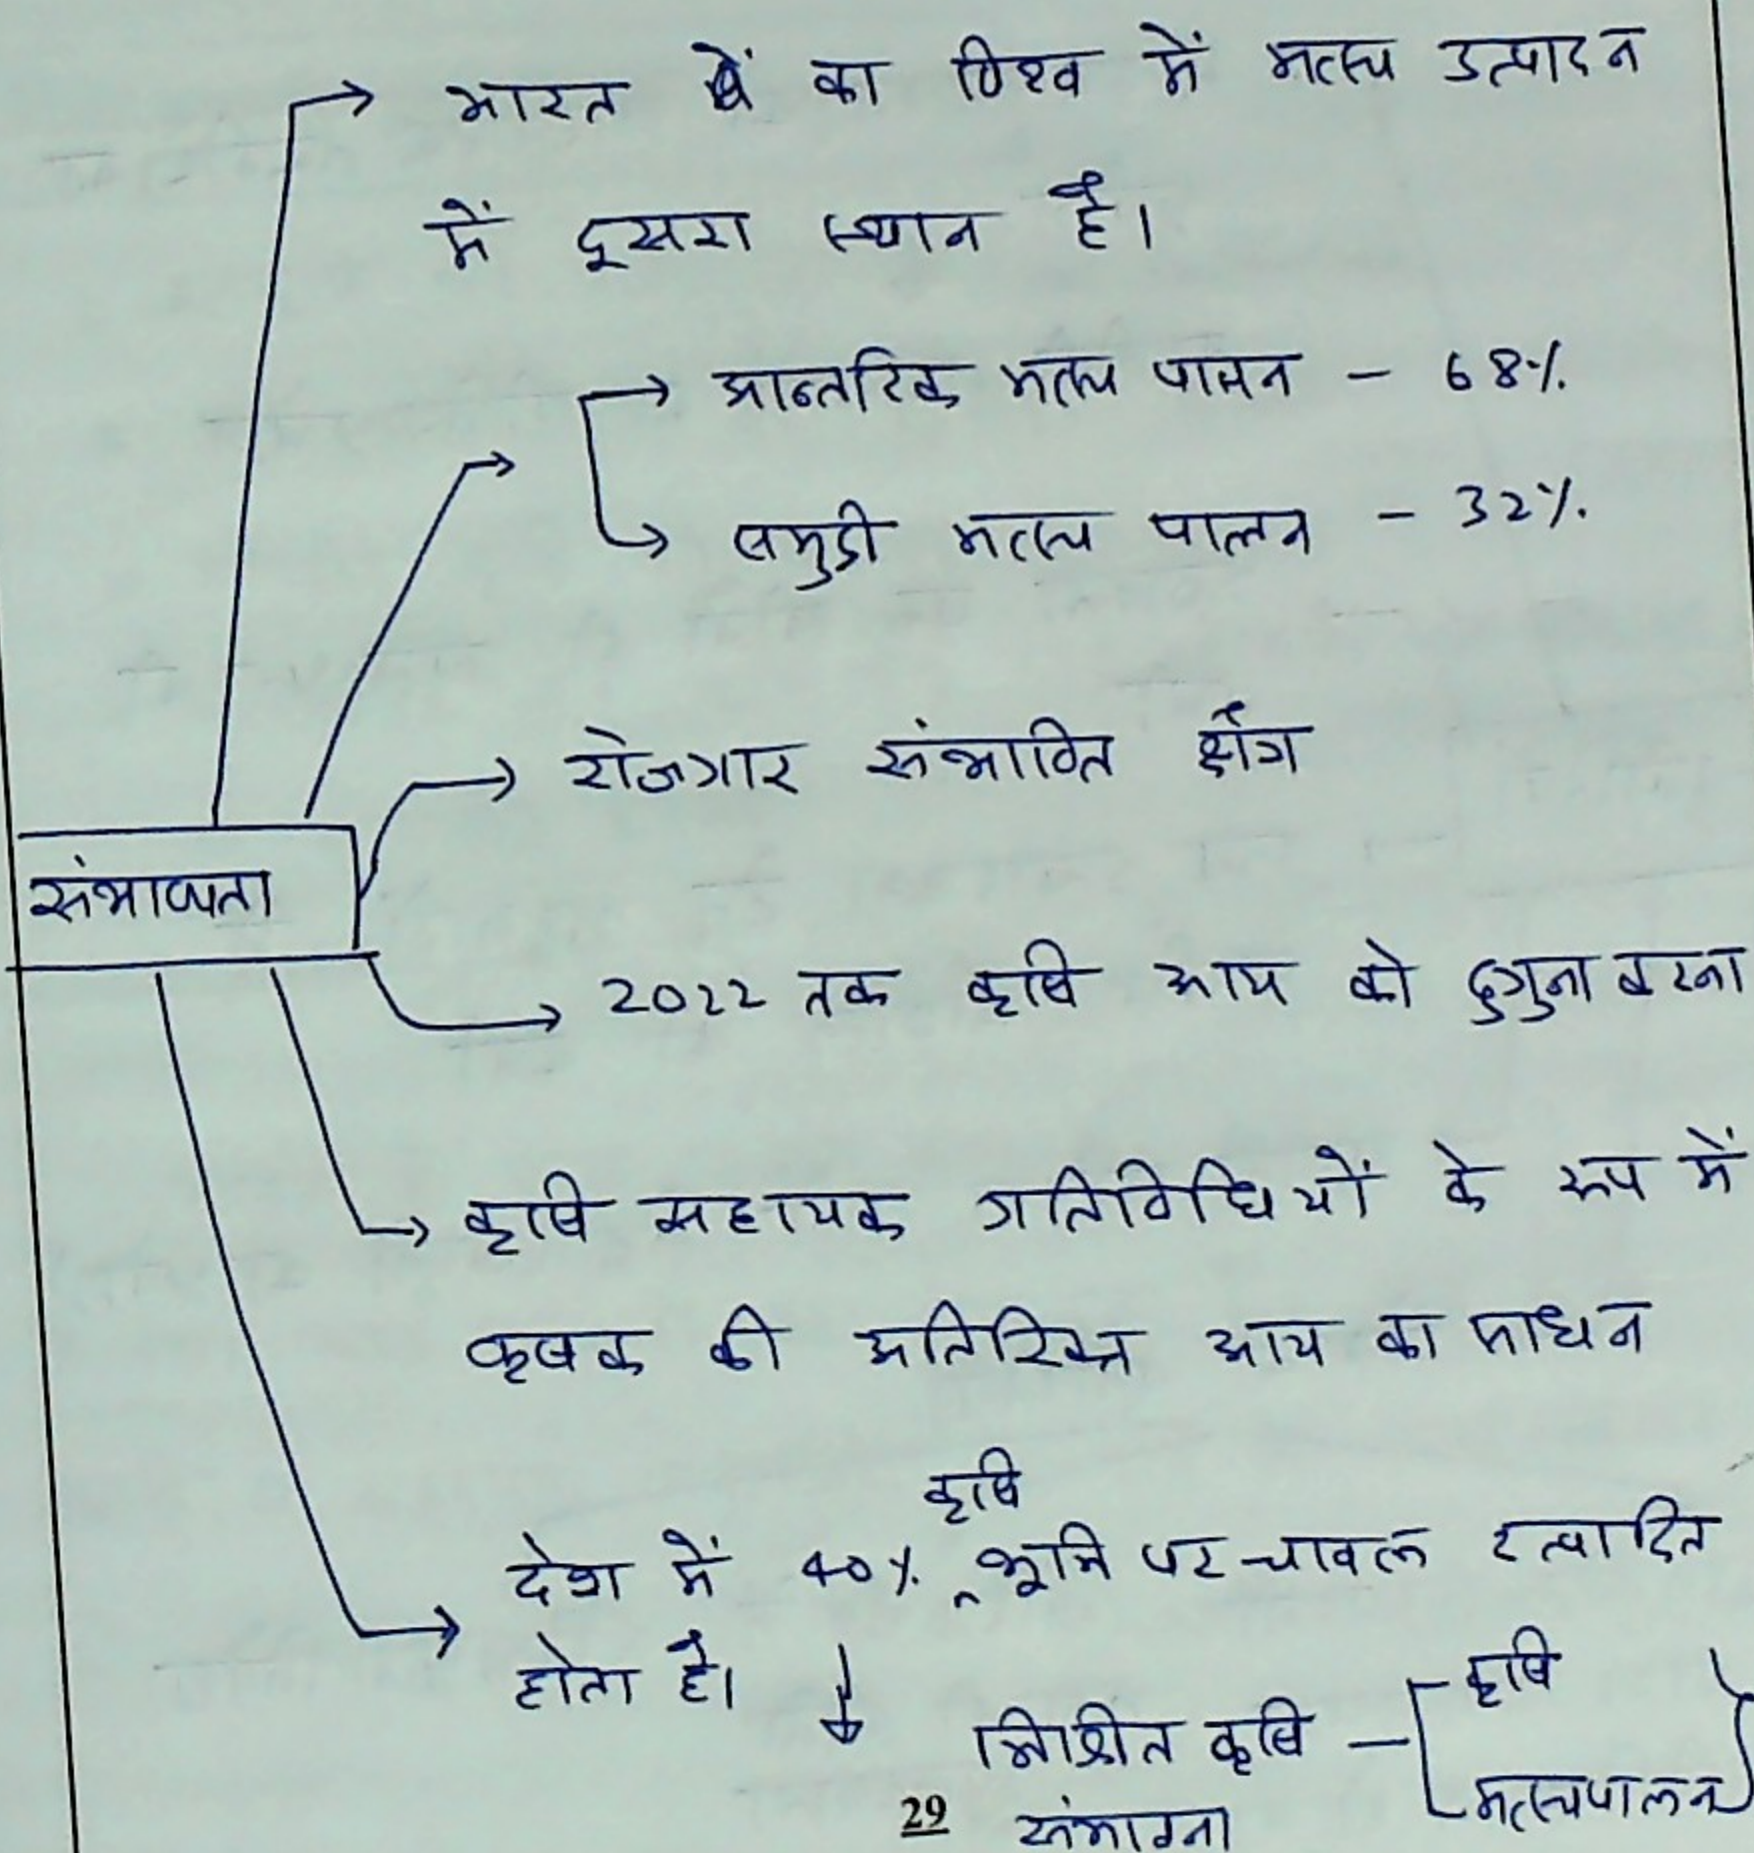 भारत का विश्व में मत्स्य उत्पादन
में दूसरा स्थान है।
आन्तरिक मत्स्य पालन - 68%
समुद्री मत्स्य पालन - 32%
रोजगार संभावित क्षेत्र
संभाव्यता
2022 तक कृषि आय को दुगुना करना
कृषि सहायक गतिविधियों के रूप में
कृषक की अतिरिक्त आय का साधन
कृषि
देश में 40% भूमि पर चावल उत्पादित
होता है।
कृषि
मिश्रीत कृषि -
मत्स्यपालन
संभावना
29